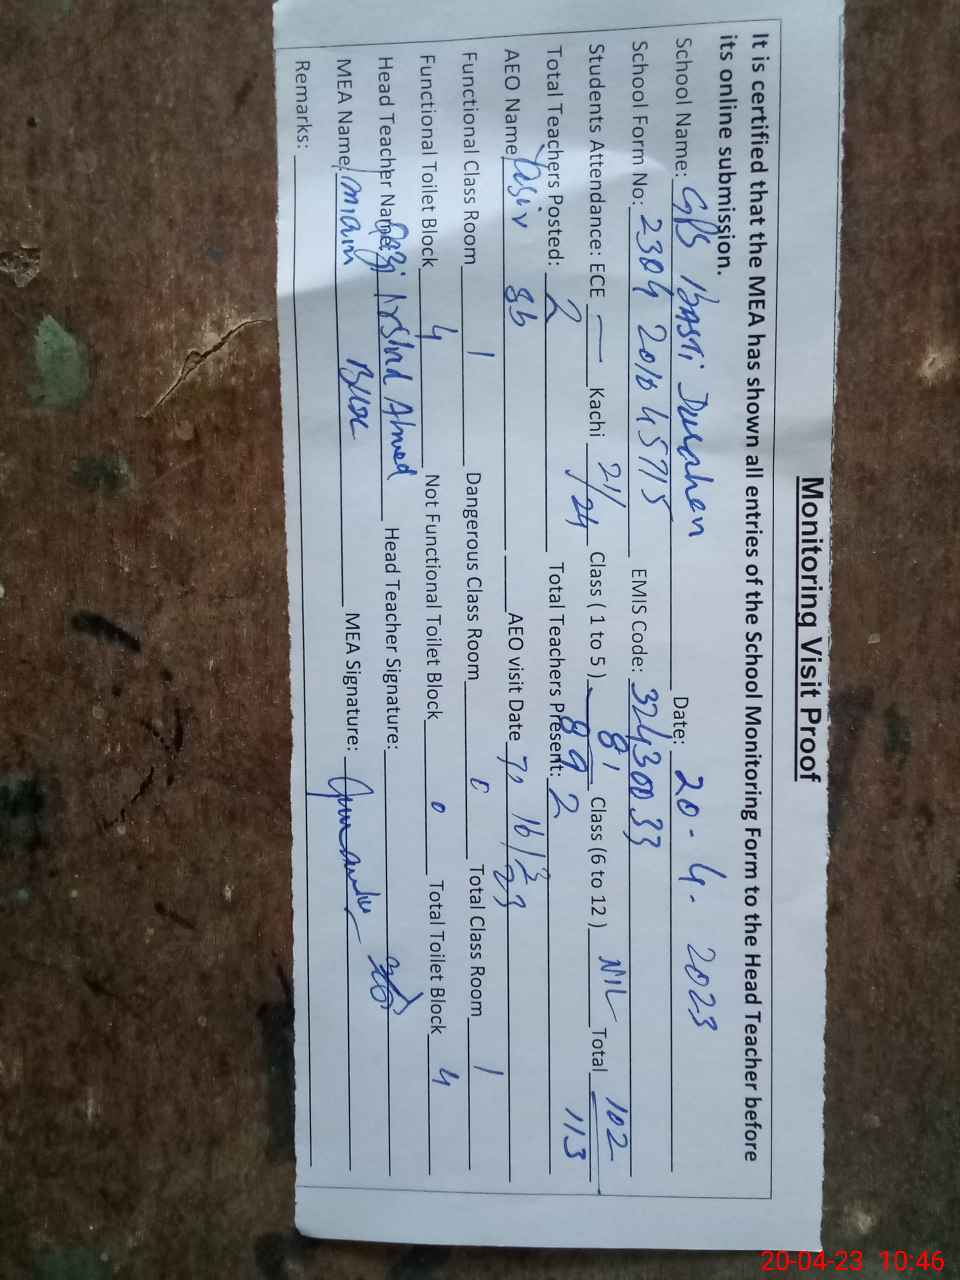 Monitoring Visit Proof
It is certified that the MEA has shown all entries of the School Monitoring Form to the Head Teacher before
its online submission.
School Name: GPS Basti Durahen Date: 20-4-2023
School Form No: 2304 2010 45715 EMIS Code: 32430033
Students Attendance: ECE — Kachi 21/24 Class ( 1 to 5 ) 81/89 Class (6 to 12 ) NIL Total 102/113
Total Teachers Posted: 2 Total Teachers Present: 2
AEO Name Yasir sb AEO visit Date 16/2/23
Functional Class Room 1 Dangerous Class Room 0 Total Class Room 1
Functional Toilet Block 4 Not Functional Toilet Block 0 Total Toilet Block 4
Head Teacher Name: Qazi Irshad Ahmed Head Teacher Signature:
MEA Name: Imam Bux MEA Signature:
Remarks:
20-04-23 10:46